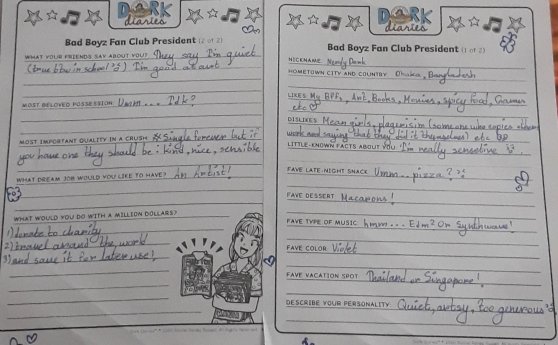 DORK
diaries
Bad Boyz Fan Club President (2 of 2)
WHAT YOUR FRIENDS SAY ABOUT YOU? They say I'm quiet
(true btw in school :')) I'm good at art
MOST BELOVED POSSESSION: Umm... Idk?
MOST IMPORTANT QUALITY IN A CRUSH: Single forever but if
you have one they should be: kind, nice, sensible
WHAT DREAM JOB WOULD YOU LIKE TO HAVE? An Artist!
WHAT WOULD YOU DO WITH A MILLION DOLLARS?
1) donate to charity
2) travel around the world
3) and save it for later use!
DORK
diaries
Bad Boyz Fan Club President (1 of 2)
NICKNAME: Nerdy Dork
HOMETOWN CITY AND COUNTRY: Dhaka, Bangladesh
LIKES: My BFFs, Art, Books, Movies, spicy food, Games
etc
DISLIKES: Mean girls, plagiarism (someone who copies others
work and saying that they did it themselves) etc
LITTLE-KNOWN FACTS ABOUT YOU: I'm really sensetive
FAVE LATE-NIGHT SNACK: Umm.. pizza??
FAVE DESSERT: Macarons!
FAVE TYPE OF MUSIC: hmm... Edm? Or Synthwave!
FAVE COLOR: Violet
FAVE VACATION SPOT: Thailand or Singapore!
DESCRIBE YOUR PERSONALITY: Quiet, artsy, too generous